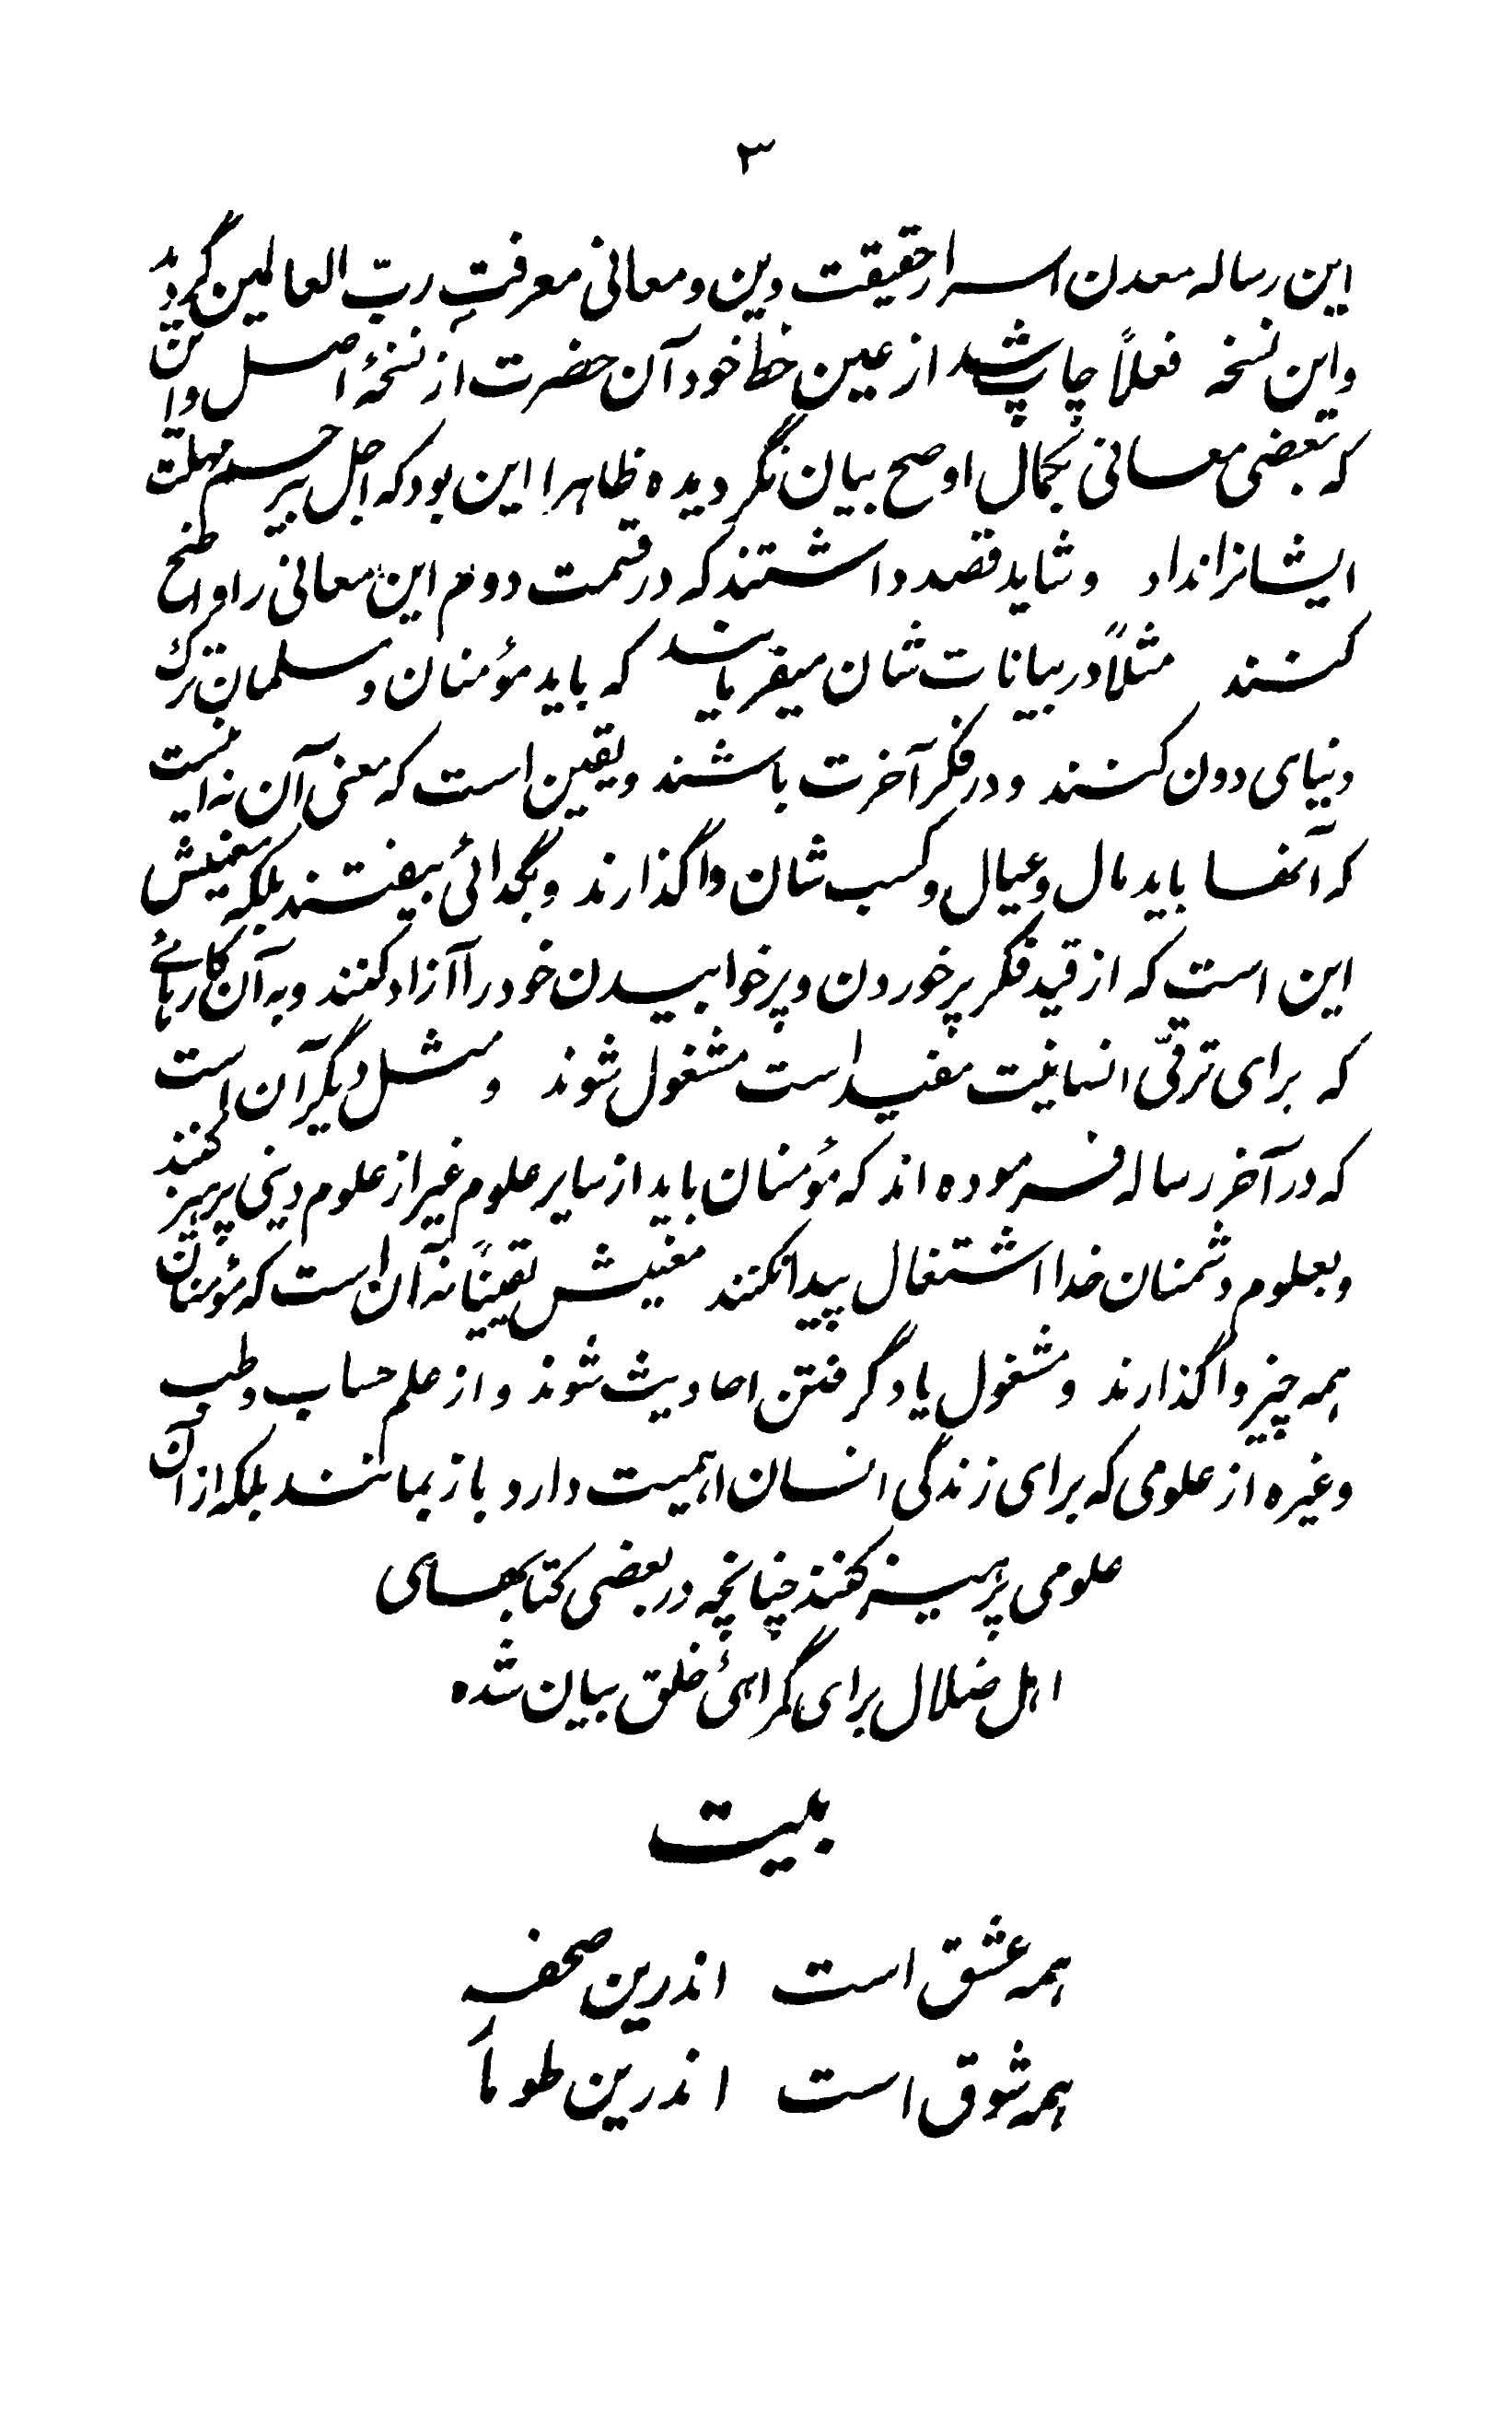 ۳
این رساله معدن اسرار حقیقت دین و معانی معرفتِ ربّ العالمین گردید
و این نسخه فعلاً چاپ شد از عین خط خود آن حضرت از نسخهٔ اصل و این
که بعضی معانی بکمال اوضح بیان نگردیده ظاهرا این بود که اجل بیرحم مهلت
ایشانرا نداد و شاید قصد داشتند که در قسمت دوم این معانی را واضح
کنند مثلاً در بیانات شان میفرمایند که باید مؤمنان و مسلمان ترک
دنیای دون کنند و در فکر آخرت باشند و یقین است که معنی آن نه اینست
که آنها باید مال و عیال و کسب شان واگذارند و بگدائی بیفتند بلکه معنیش
این است که از قید فکر پرخوردن و پرخوابیدن خود را آزاد کنند و به آن کارهائے
که برای ترقّی انسانیت مفید است مشغول شوند و مثل دیگر آن است
که در آخر رساله فرموده اند که مؤمنان باید از سایر علوم غیر از علوم دینی پرهیز کنند
و بعلوم دشمنان خدا اشتغال پیدا نکنند معنیش یقیناً نه آن است که مؤمنان
همه چیز واگذارند و مشغول یاد گرفتن احادیث شوند و از علم حساب و طب
و غیره از علومی که برای زندگی انسان اهمیت دارد باز بمانند بلکه از آن
علومی پرهیز کنند چنانچه در بعضی کتابهای
اهل ضلال برای گمراهیٔ خلق بیان شده
بیت
همه عشق است اندرین صحف
همه شوق است اندرین طومار